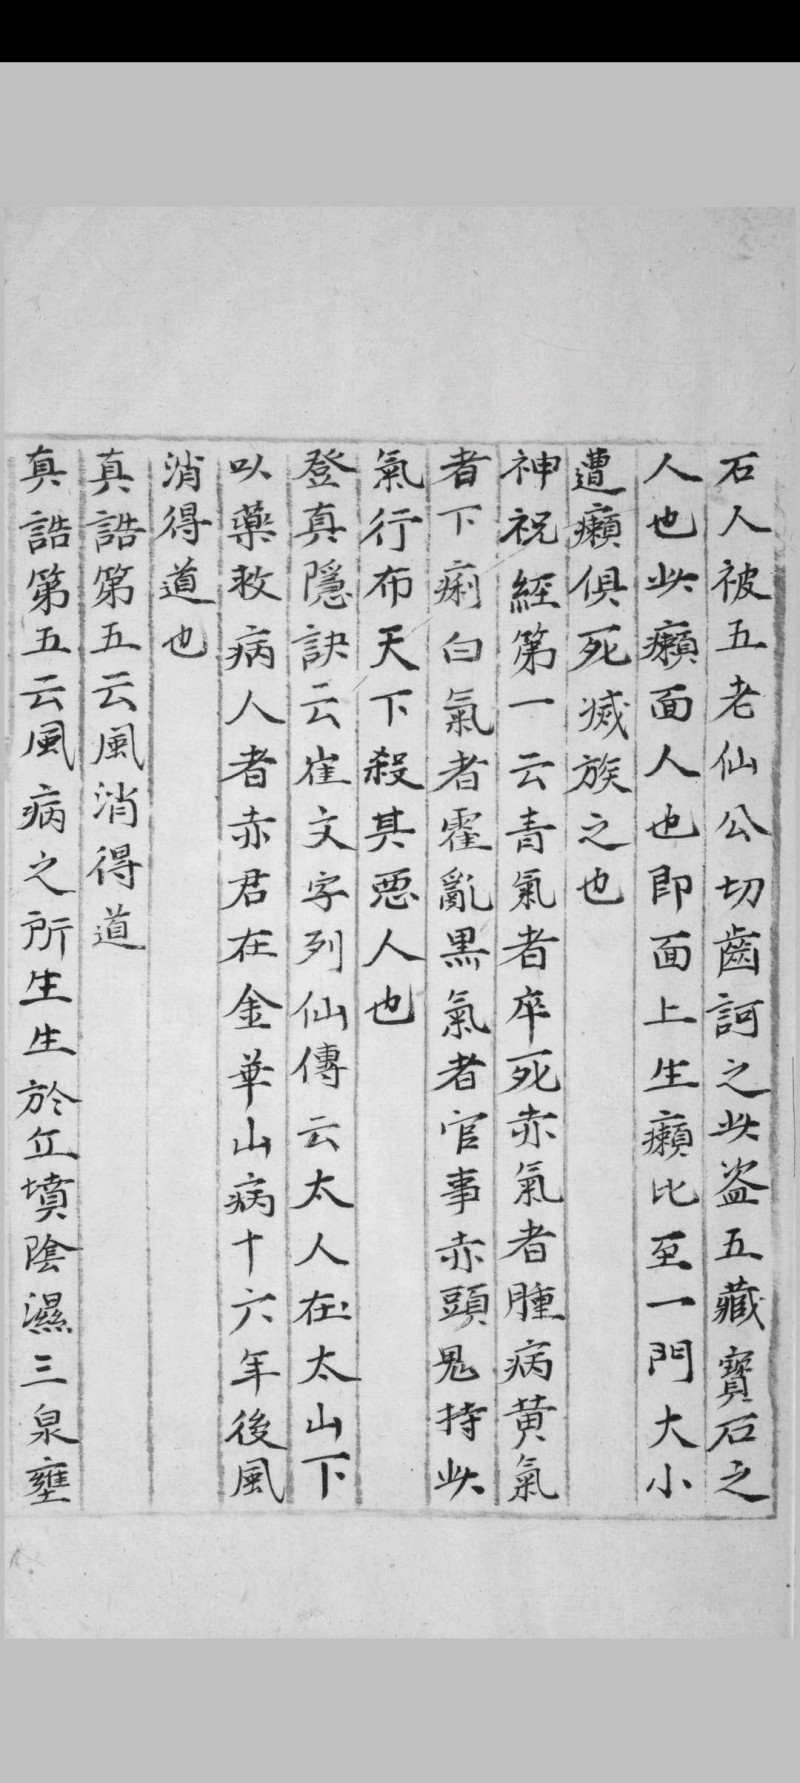 石人被五老仙公切齒訶之此盗五藏寶石之
人也此癩面人也即面上生癩比至一門大小
遭癩俱死滅族之也
神祝經第一云青氣者卒死赤氣者腫病黄氣
者下痢白氣者霍亂黒氣者官事赤頭鬼持此
氣行布天下殺其惡人也
登真隱訣云崔文字列仙傳云太人在太山下
以藥救病人者赤君在金華山病十六年後風
消得道也
真誥第五云風消得道
真誥第五云風病之所生生於丘墳陰濕三泉壅